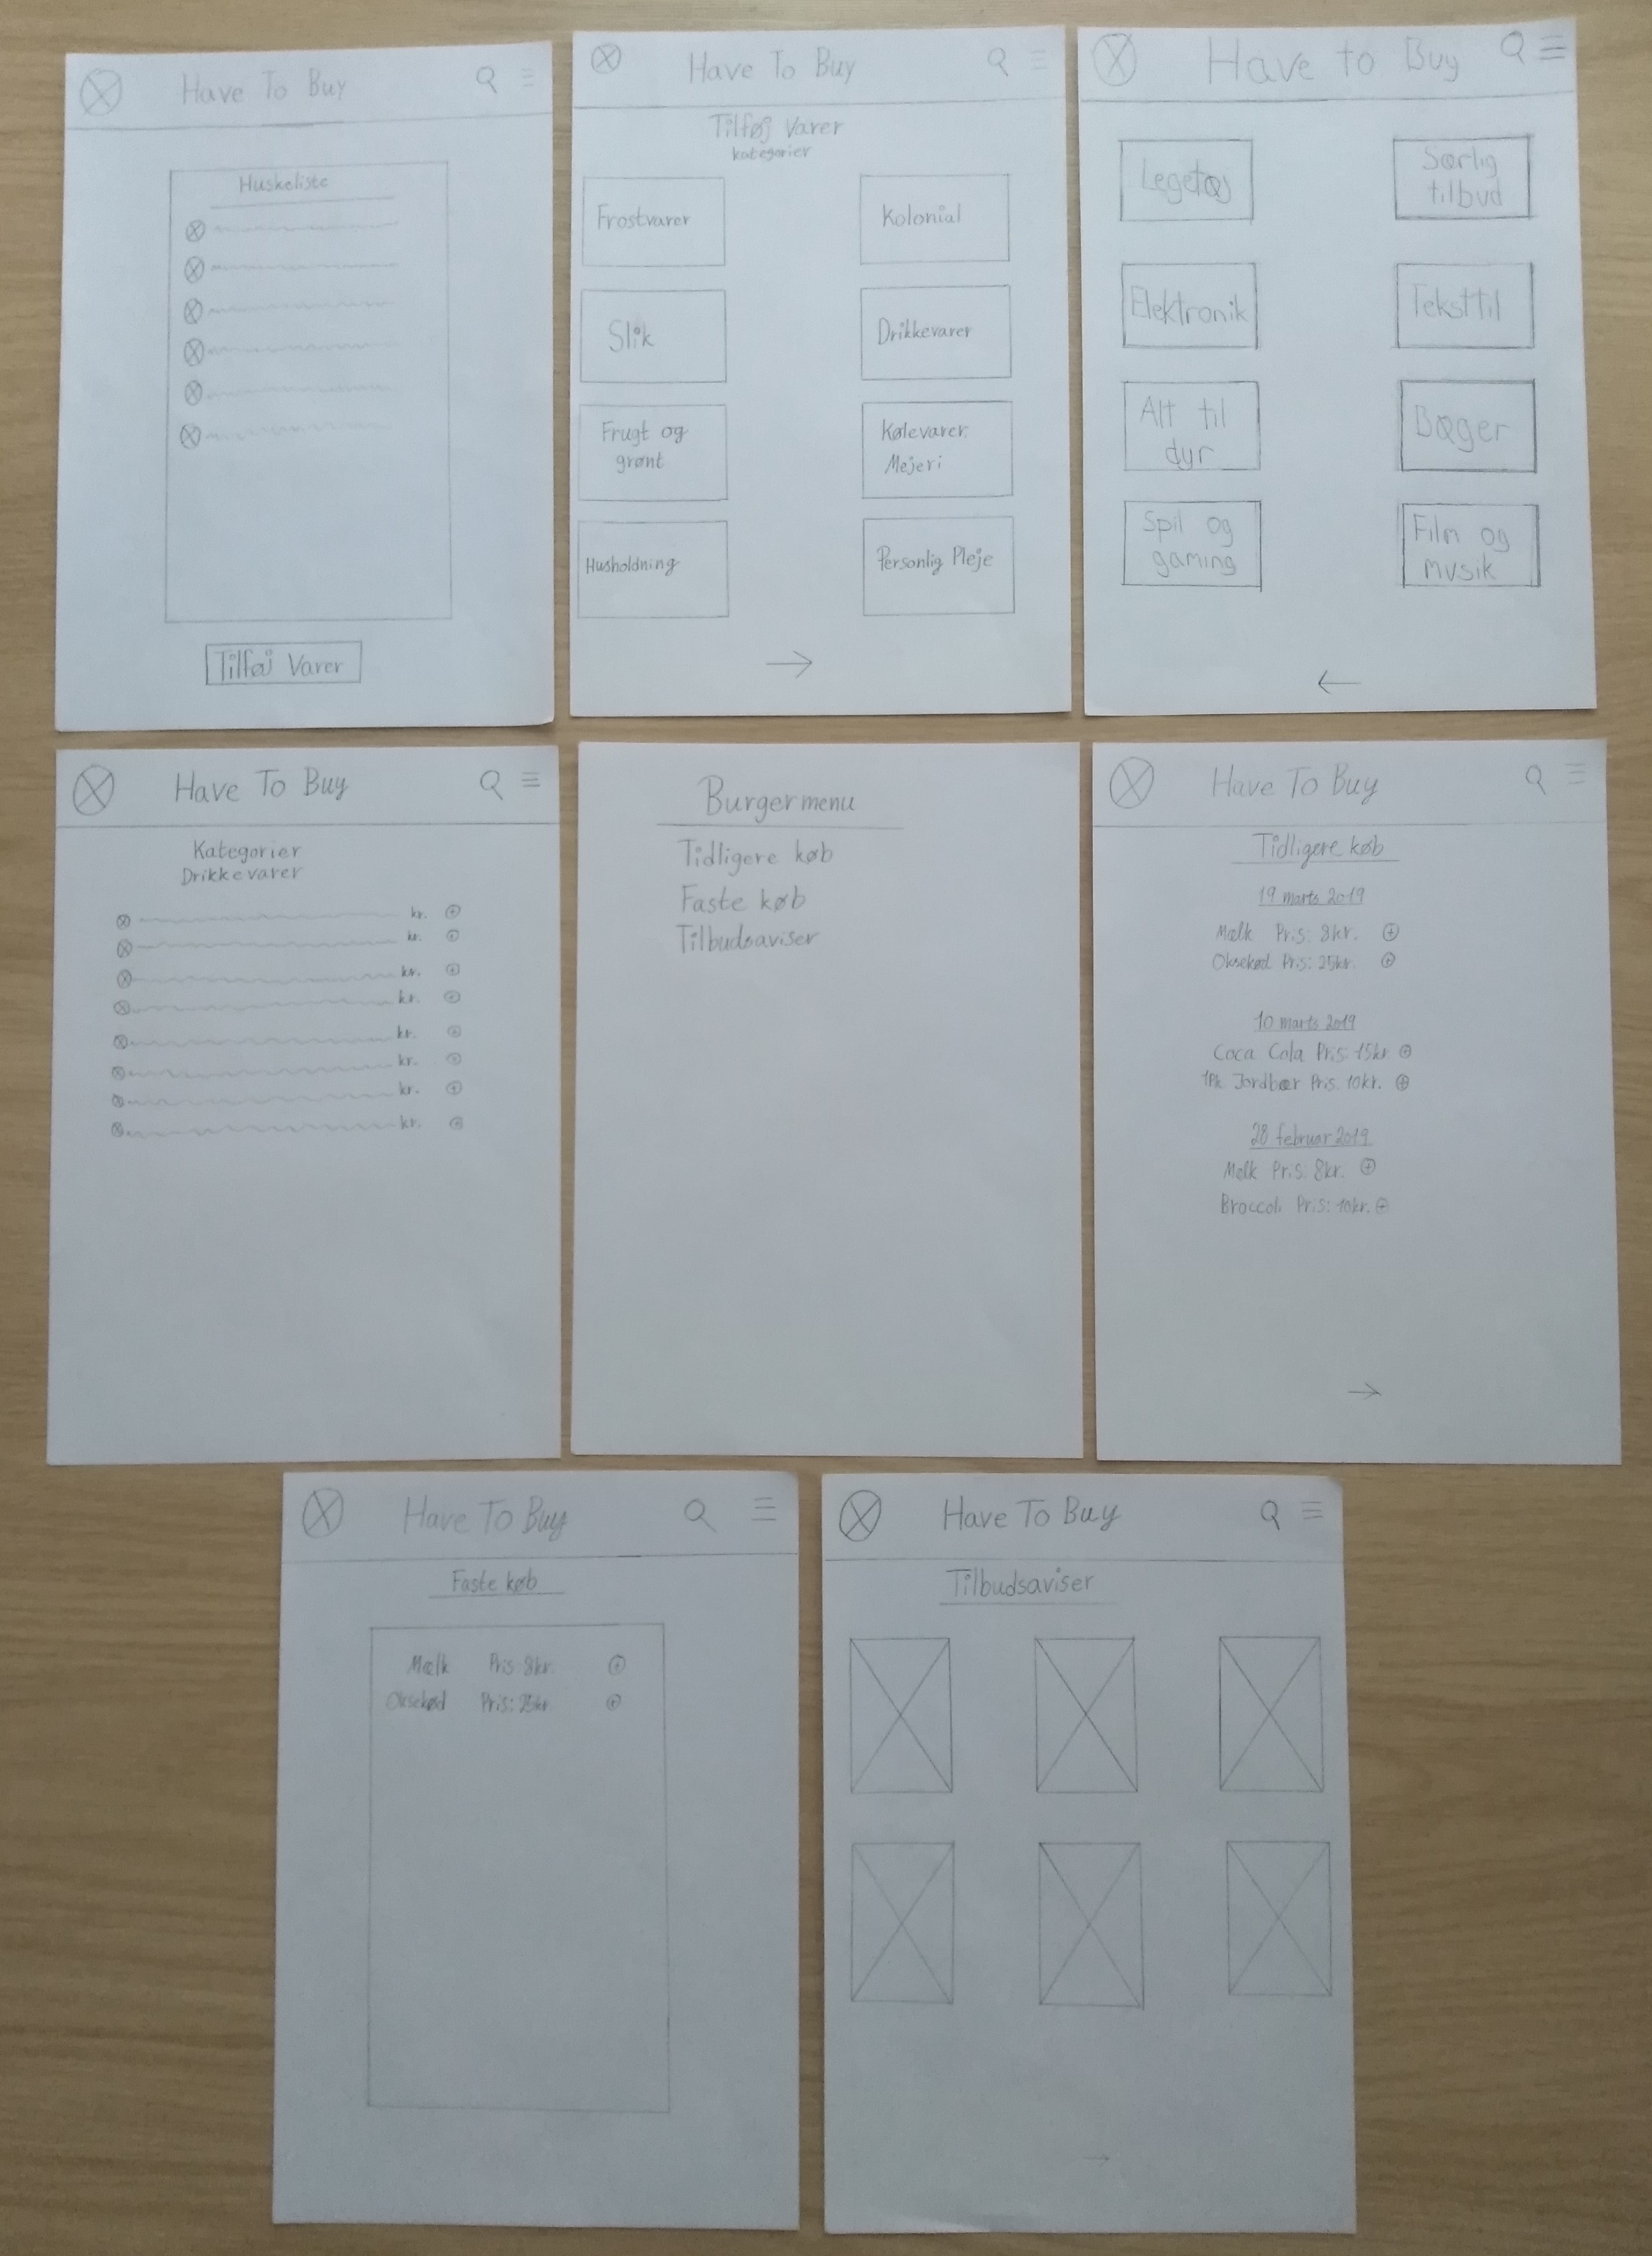 Have To Buy
Huskeliste
Tilføj Varer
Have To Buy
Tilføj Varer
kategorier
Frostvarer
Kolonial
Slik
Drikkevarer
Frugt og
grønt
Kølevarer
Mejeri
Husholdning
Personlig Pleje
Have to Buy
Legetøj
Særlig
tilbud
Elektronik
Teksttil
Alt til
dyr
Bøger
Spil og
gaming
Film og
musik
Have To Buy
Kategorier
Drikkevarer
kr.
kr.
kr.
kr.
kr.
kr.
kr.
kr.
Burgermenu
Tidligere køb
Faste køb
Tilbudsaviser
Have To Buy
Tidligere køb
19 marts 2019
Mælk Pris: 8kr.
Oksekød Pris: 25kr.
10 marts 2019
Coca Cola Pris: 15kr
1Pk. Jordbær Pris. 10kr.
28 februar 2019
Mælk Pris: 8kr.
Broccoli Pris: 10kr.
Have To Buy
Faste køb
Mælk Pris 8kr.
Oksekød Pris: 25kr
Have To Buy
Tilbudsaviser